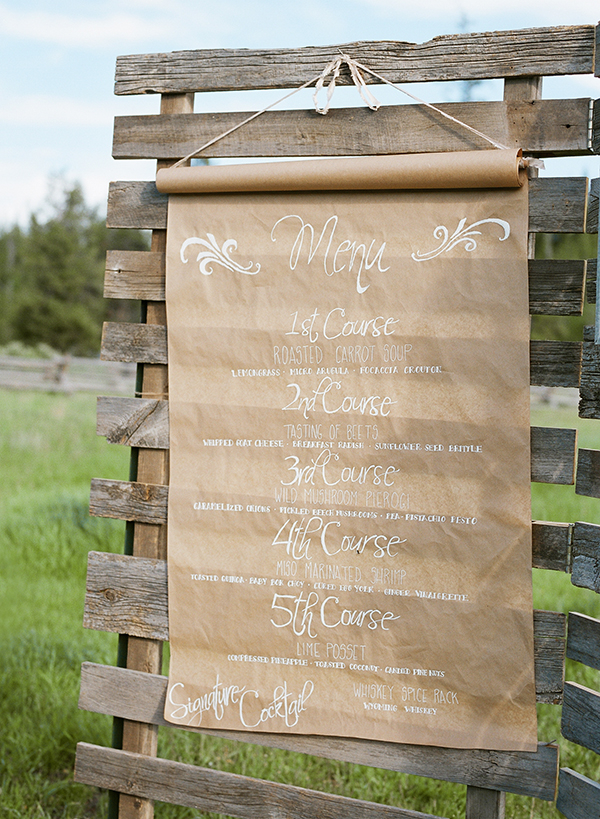 Menu
1st Course
ROASTED CARROT SOUP
LEMONGRASS · MICRO ARUGULA · FOCACCIA CROUTON
2nd Course
TASTING OF BEETS
WHIPPED GOAT CHEESE · BREAKFAST RADISH · SUNFLOWER SEED BRITTLE
3rd Course
WILD MUSHROOM PIEROGI
CARAMELIZED ONIONS · PICKLED BEECH MUSHROOMS · PEA-PISTACHIO PESTO
4th Course
MISO MARINATED SHRIMP
TOASTED QUINOA · BABY BOK CHOY · CURED EGG YOLK · GINGER VINAIGRETTE
5th Course
LIME POSSET
COMPRESSED PINEAPPLE · TOASTED COCONUT · CANDIED PINE NUTS
Signature Cocktail
WHISKEY SPICE RACK
WYOMING WHISKEY